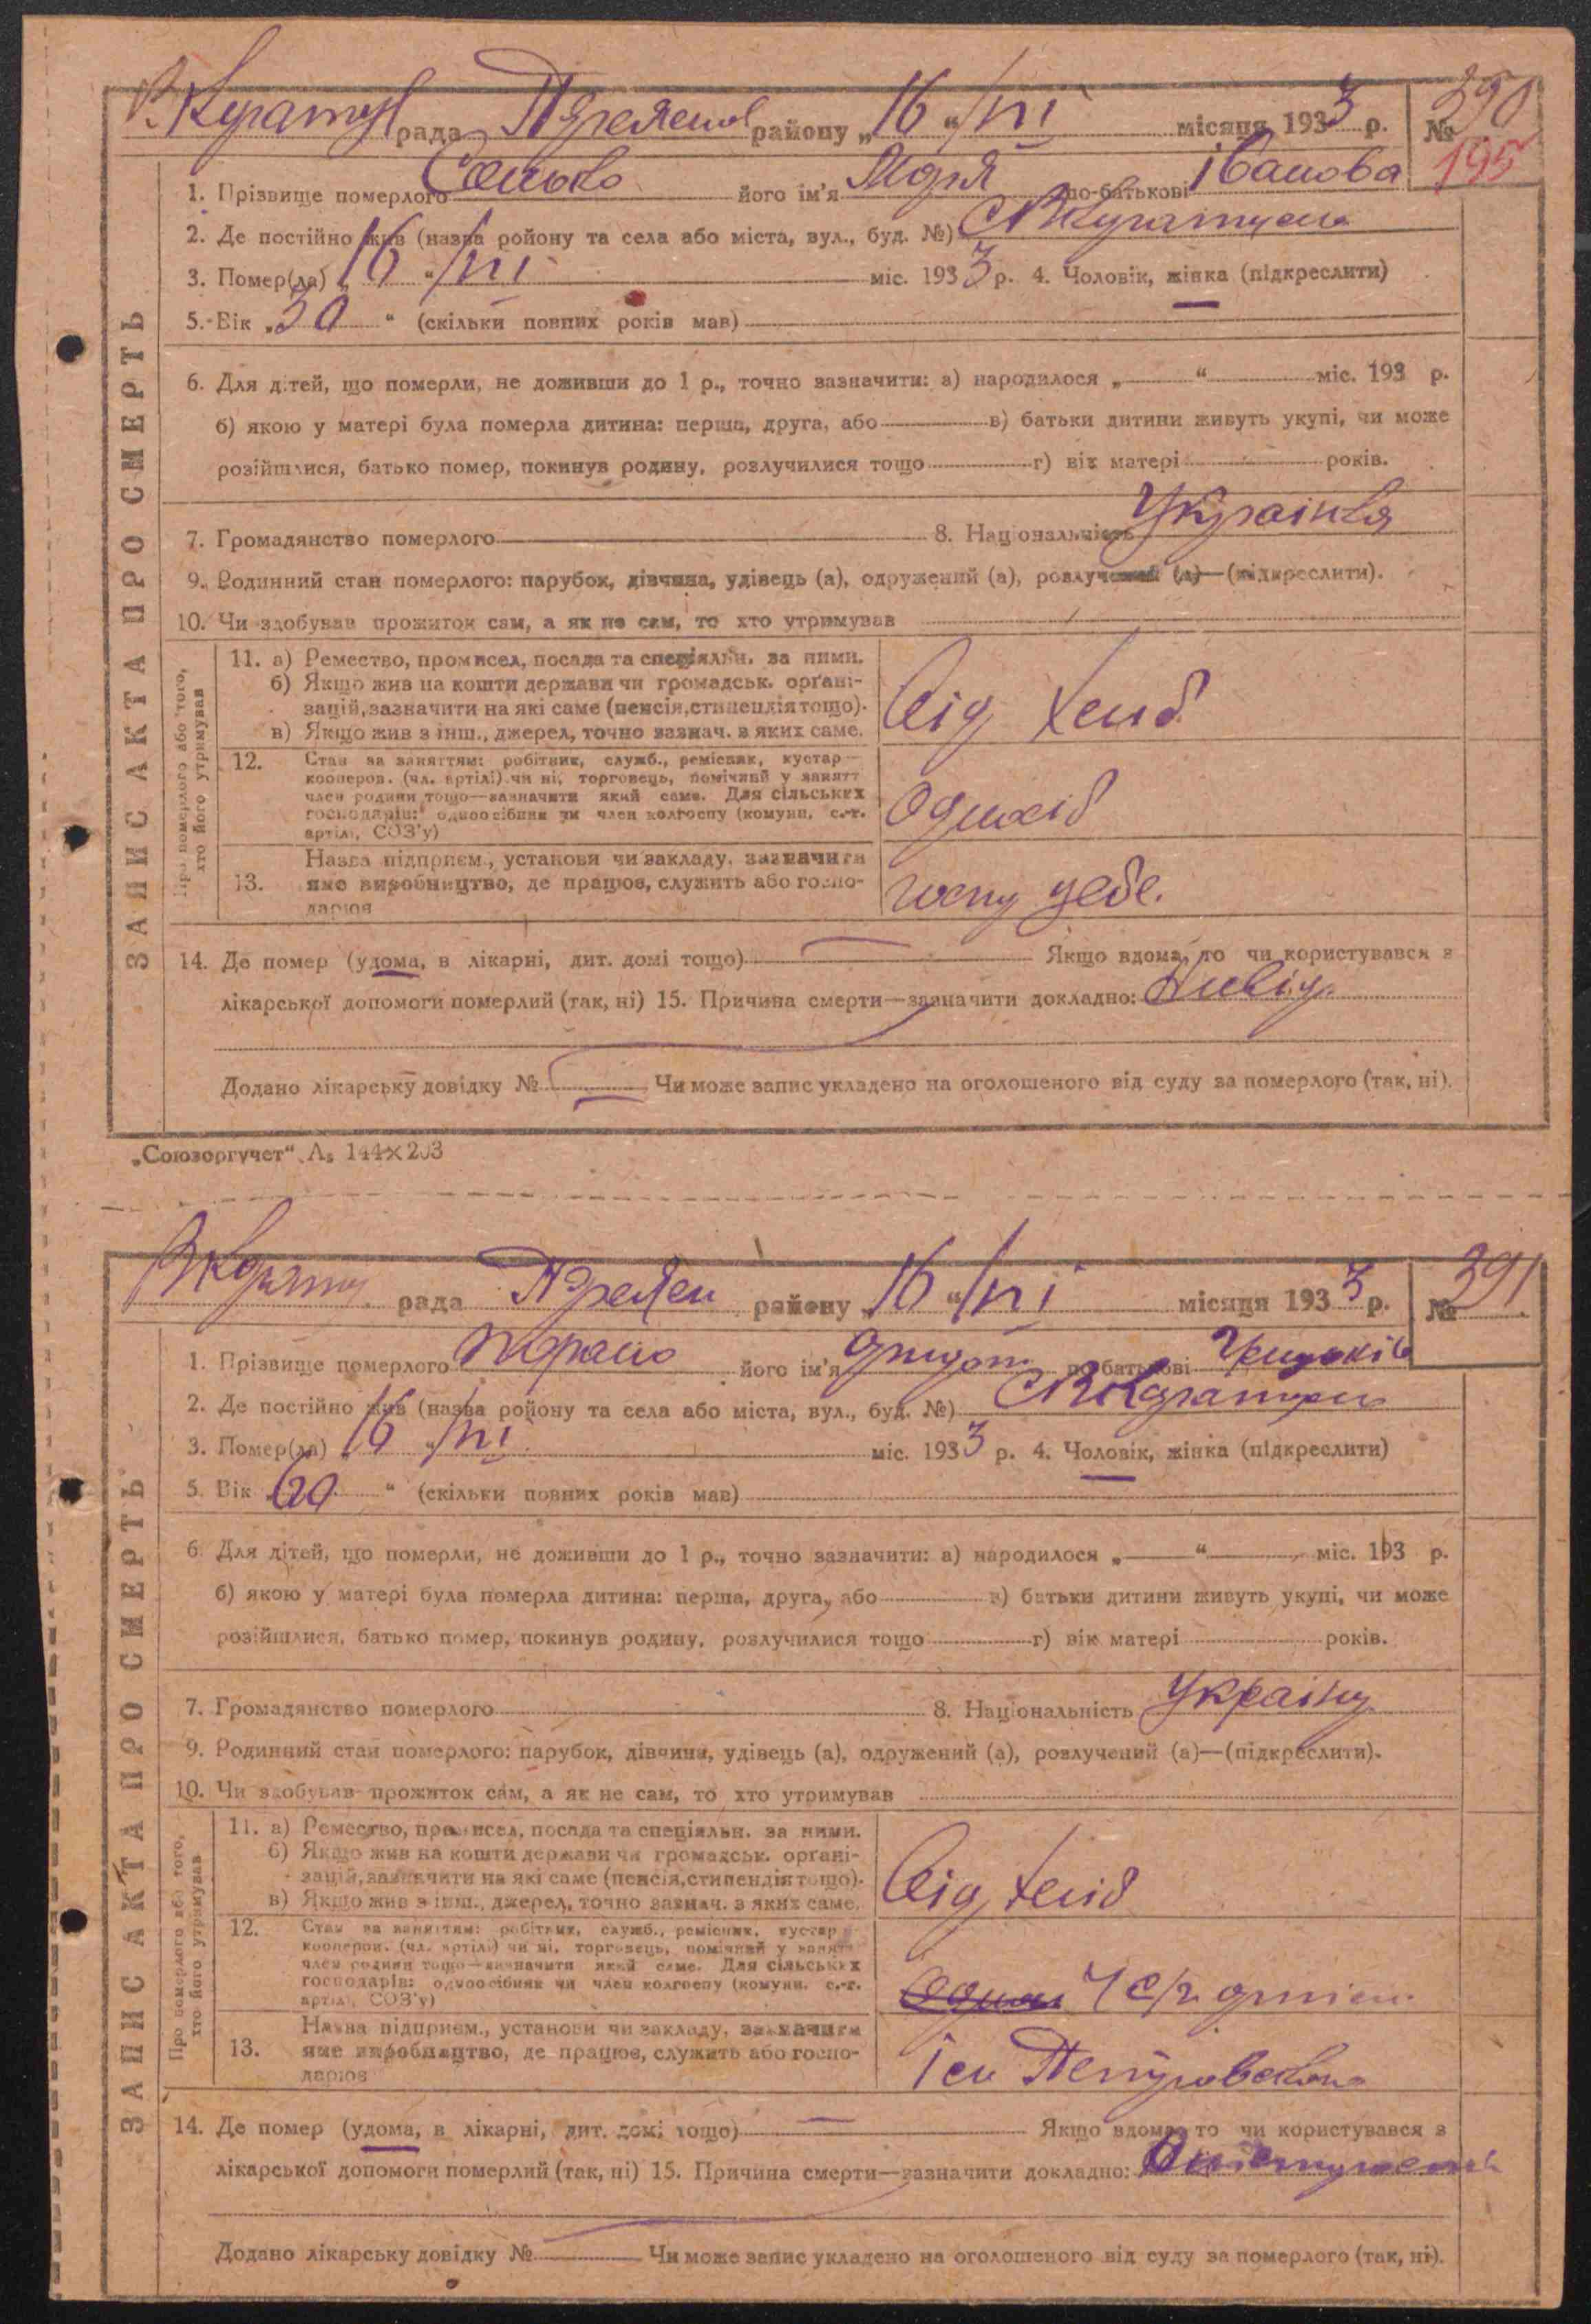 рада района „16 “/VI місяця 1933 р. № 290
195
1. Прізвище померлого Сенько його ім'я Марія по-батькові Іванова
2. Де постійно жив (назва ройону та села або міста, вул., буд. №)
3. Помер(ла) „16 “/VI міс. 1933 р. 4. Чоловік, жінка (підкреслити)
5. Вік „30 “ (скільки повних років мав)
6. Для дітей, що померли, не доживши до 1 р., точно зазначити: а) народилося „ “ міс. 193 р.
б) якою у матері була померла дитина: перша, друга, або в) батьки дитини живуть укупі, чи може
розійшлися, батько помер, покинув родину, розлучилися тощо г) вік матері років.
7. Громадянство померлого 8. Національність Українка
9. Родинний стан померлого: парубок, дівчина, удівець (а), одружений (а), розлучений (а)—(підкреслити).
10. Чи здобував прожиток сам, а як не сам, то хто утримував
ЗАПИС АКТА ПРО СМЕРТЬ
Про померлого або того, хто його утримував
11. а) Ремество, промисел, посада та спеціяльн. за ними.
б) Якщо жив на кошти держави чи громадськ. орґані-
зацій, зазначити на які саме (пенсія, стипендія тощо).
в) Якщо жив з інш., джерел, точно зазнач. з яких саме.
від хліб
12. Стан за заняттям: робітник, служб., ремісник, кустар—
кооперов. (чл. артілі) чи ні, торговець, помічний у занятт
член родини тощо—зазначити який саме. Для сільських
господарів: одноосібник чи член колгоспу (комуни, с.-г.
артілі, СОЗ'у)
13. Назва підприєм., установи чи закладу, зазначити
яке виробництво, де працює, служить або госпо-
дарює
14. Де помер (удома, в лікарні, дит. домі тощо) Якщо вдома, то чи користувався з
лікарської допомоги померлий (так, ні) 15. Причина смерти—зазначити докладно:
Додано лікарську довідку № Чи може запис укладено на оголошеного від суду за померлого (так, ні).
„Союзоргучет“ А₅ 144×203
рада района „16 “/VI місяця 1933 р. № 291
1. Прізвище померлого його ім'я по-батькові
2. Де постійно жив (назва ройону та села або міста, вул., буд. №)
3. Помер(ла) „16 “/VI міс. 1933 р. 4. Чоловік, жінка (підкреслити)
5. Вік „60 “ (скільки повних років мав)
6. Для дітей, що померли, не доживши до 1 р., точно зазначити: а) народилося „ “ міс. 193 р.
б) якою у матері була померла дитина: перша, друга, або в) батьки дитини живуть укупі, чи може
розійшлися, батько помер, покинув родину, розлучилися тощо г) вік матері років.
7. Громадянство померлого 8. Національність Україн
9. Родинний стан померлого: парубок, дівчина, удівець (а), одружений (а), розлучений (а)—(підкреслити).
10. Чи здобував прожиток сам, а як не сам, то хто утримував
ЗАПИС АКТА ПРО СМЕРТЬ
Про померлого або того, хто його утримував
11. а) Ремество, промисел, посада та спеціяльн. за ними.
б) Якщо жив на кошти держави чи громадськ. орґані-
зацій, зазначити на які саме (пенсія, стипендія тощо).
в) Якщо жив з інш., джерел, точно зазнач. з яких саме.
від хліб
12. Стан за заняттям: робітник, служб., ремісник, кустар—
кооперов. (чл. артілі) чи ні, торговець, помічний у занятт
член родини тощо—зазначити який саме. Для сільських
господарів: одноосібник чи член колгоспу (комуни, с.-г.
артілі, СОЗ'у)
13. Назва підприєм., установи чи закладу, зазначити
яке виробництво, де працює, служить або госпо-
дарює
14. Де помер (удома, в лікарні, дит. домі тощо) Якщо вдома, то чи користувався з
лікарської допомоги померлий (так, ні) 15. Причина смерти—зазначити докладно:
Додано лікарську довідку № Чи може запис укладено на оголошеного від суду за померлого (так, ні).